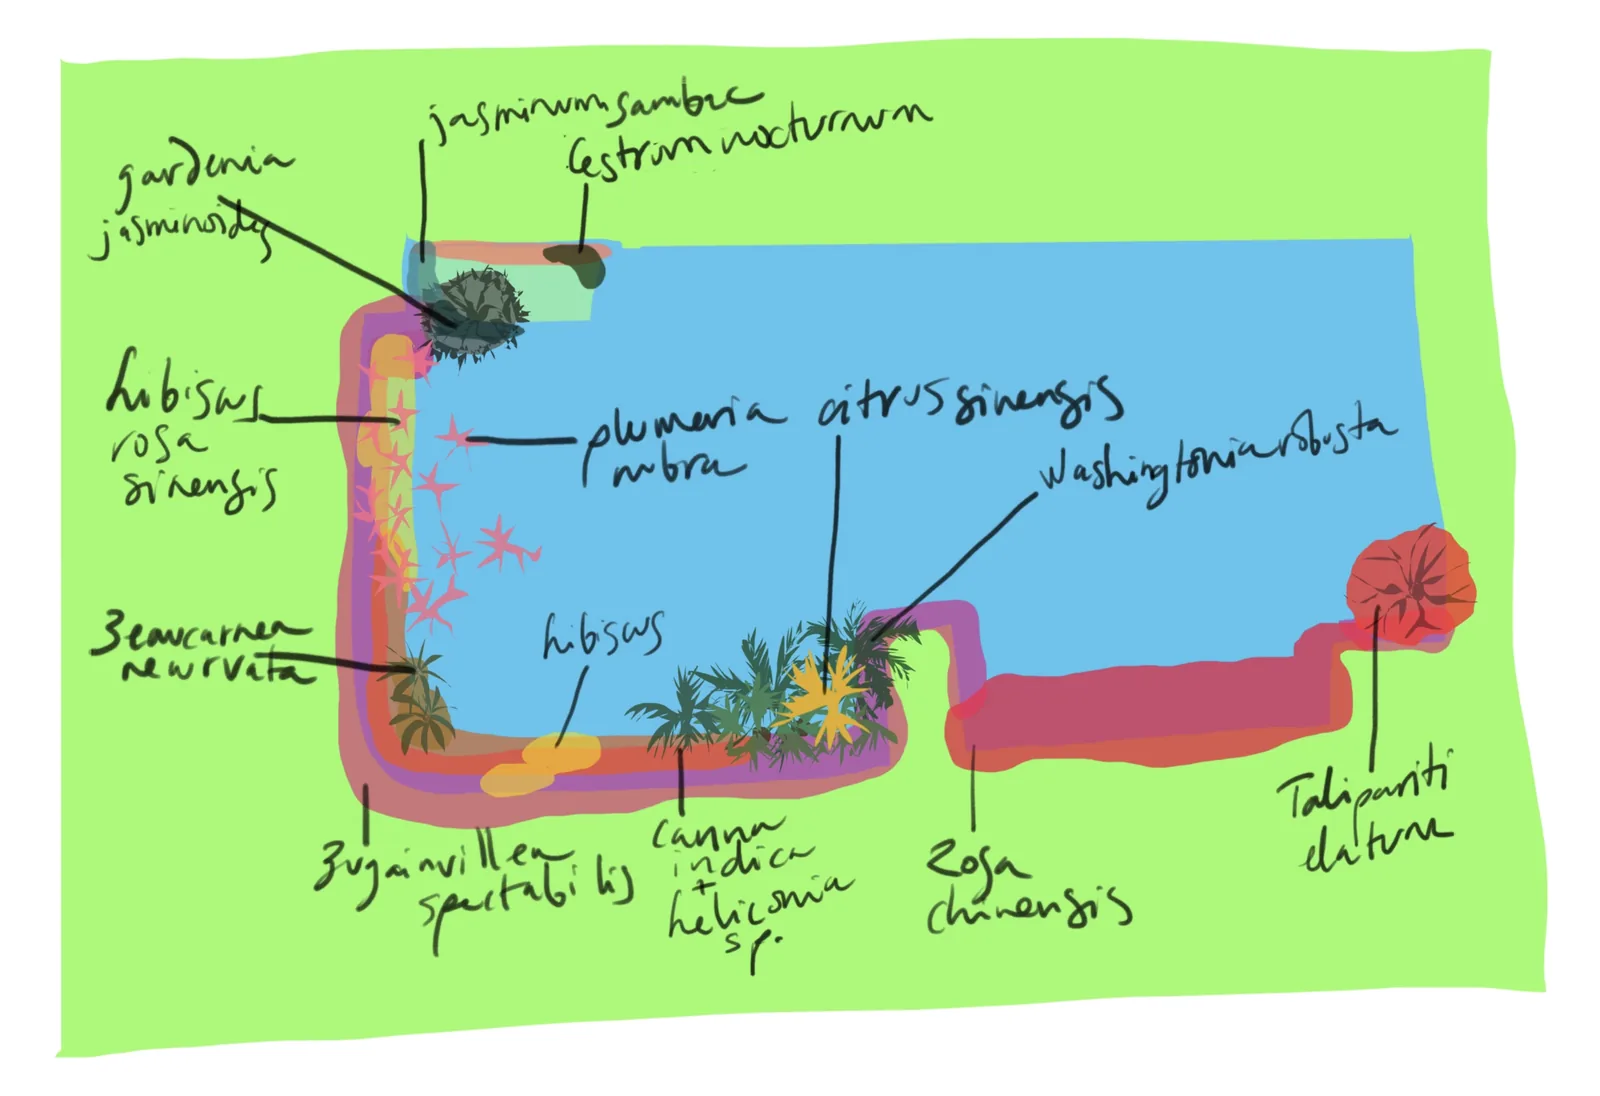 jasminum sambac
Cestrum nocturnum
gardenia
jasminoides
hibiscus
rosa
sinensis
plumeria
rubra
citrus sinensis
Washingtonia robusta
Beaucarnea
newrvata
hibiscus
Bugainvillea
spectabilis
canna
indica
+
heliconia
sp.
Rosa
chinensis
Talipariti
elatum